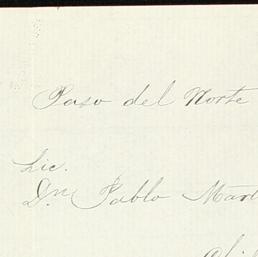 Paso del Norte
Lic.
Dn. Pablo Mart